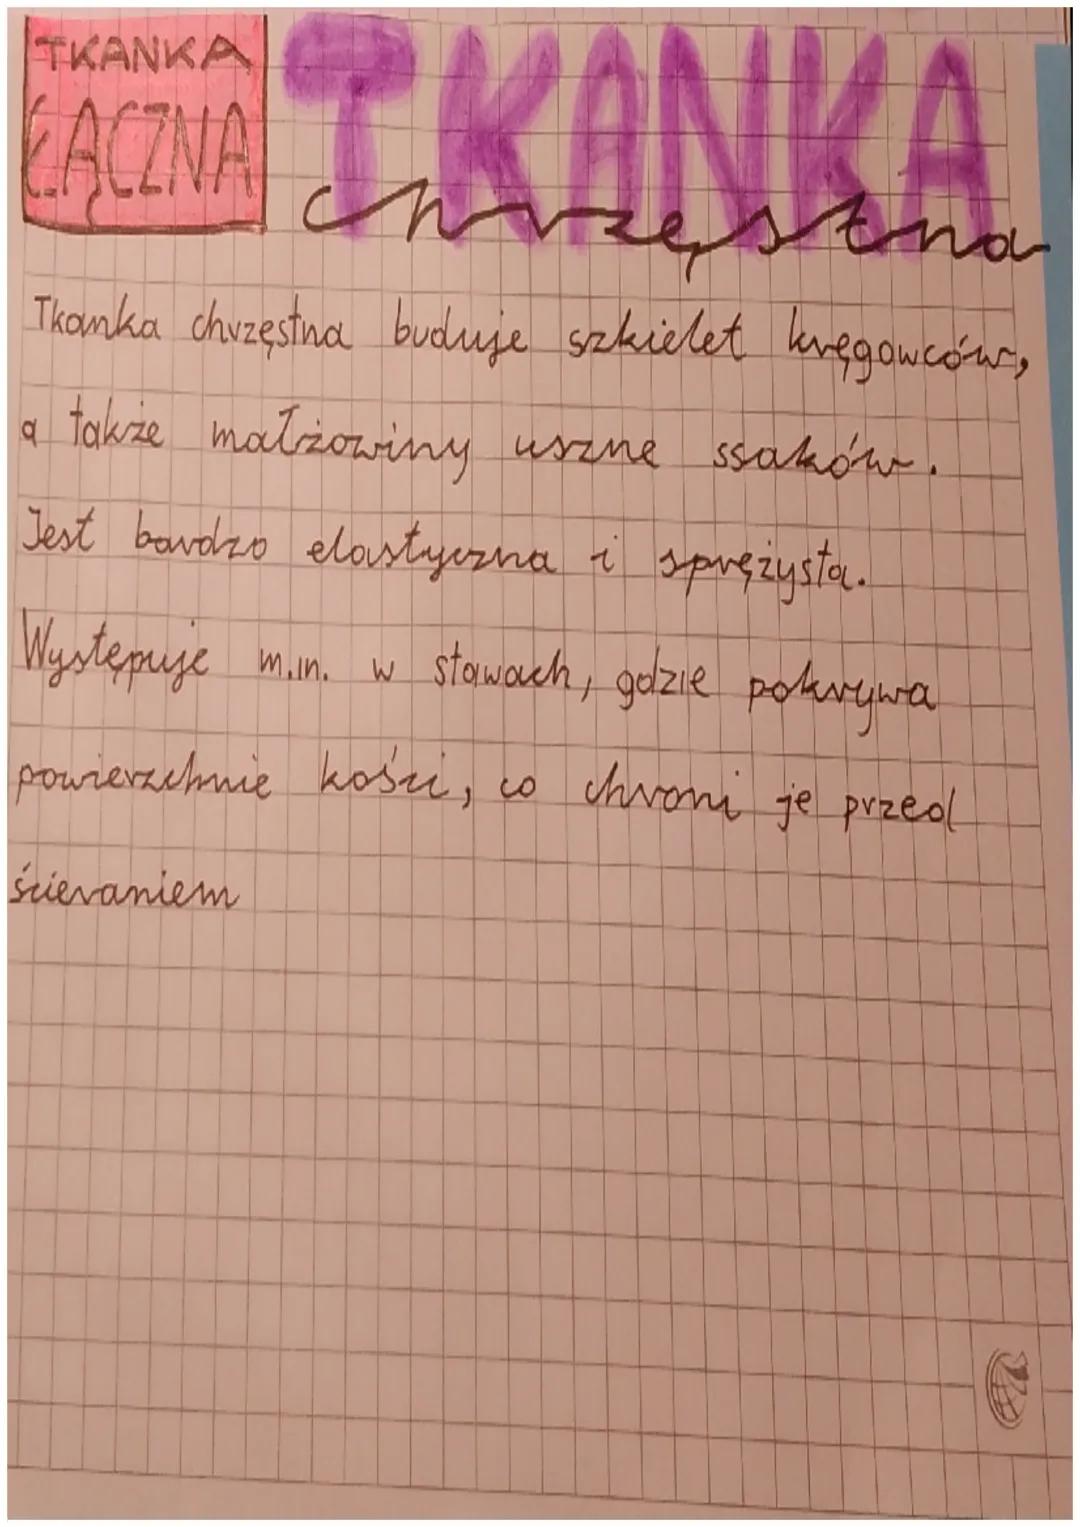 TKANKA
ŁĄCZNA
TKANKA
chrzęstna
Tkanka chrzęstna buduje szkielet kręgowców,
a także małżowiny uszne ssaków.
Jest bardzo elastyczna i sprężysta.
Występuje m.in. w stawach, gdzie pokrywa
powierzchnie kości, co chroni je przed
ścieraniem